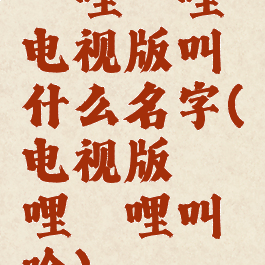 哩 哩
电视版叫
什么名字(
电视版
哩 哩叫
啥)